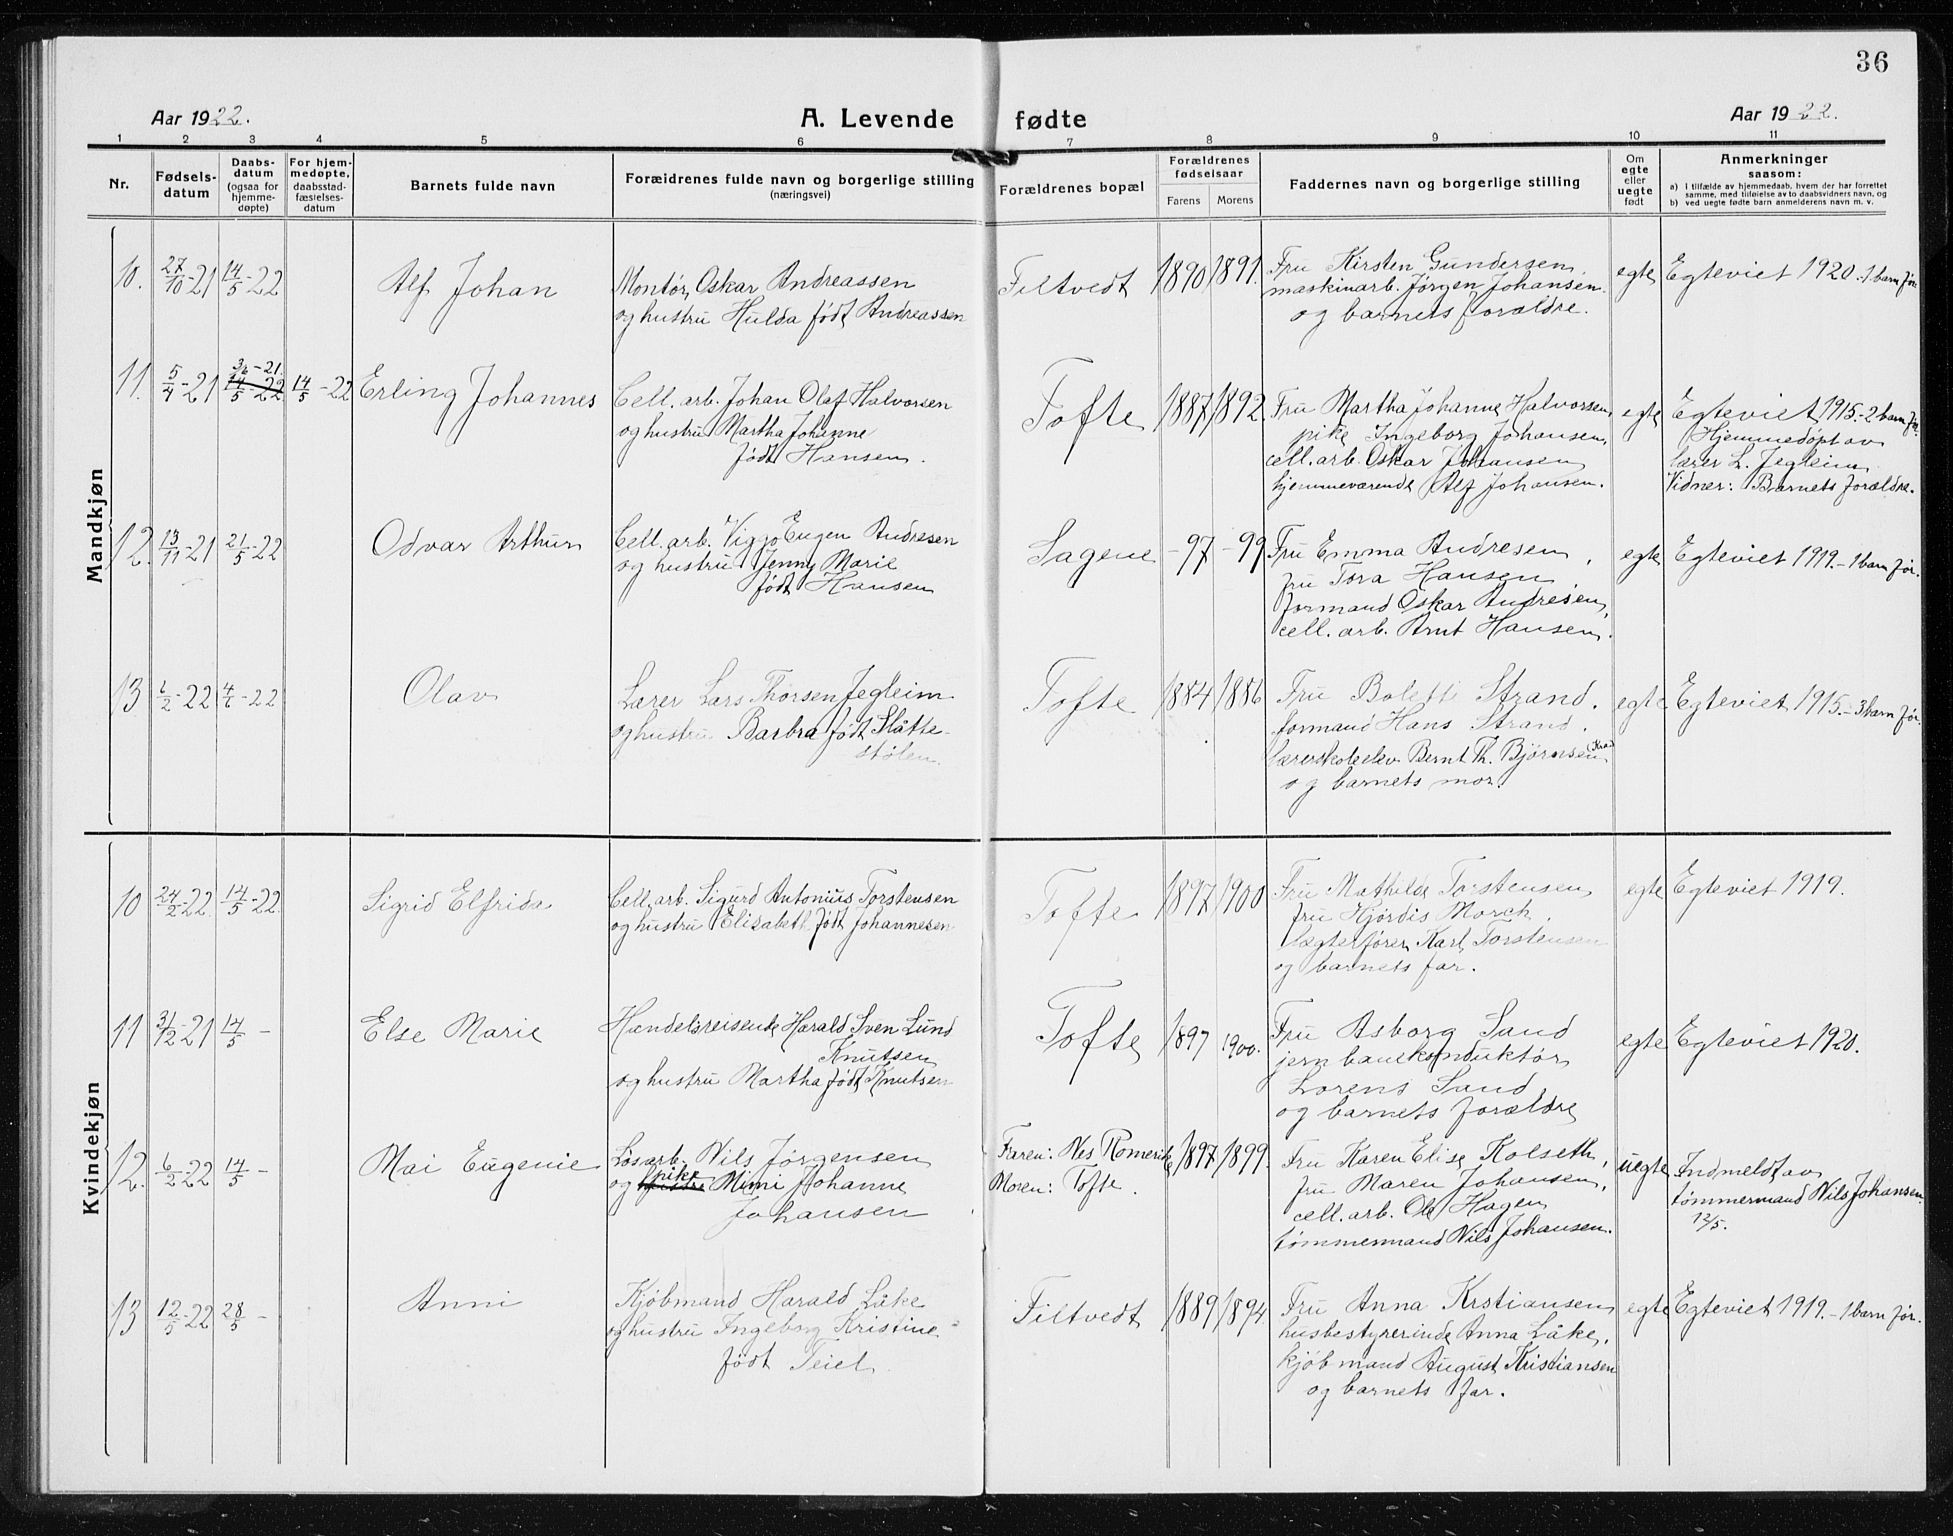 36
Aar 1922.
A. Levende fødte
Aar 1922.
1 2 3 4 5 6 7 8 9 10 11
Nr.
Fødsels-
datum
Daabs-
datum
(ogsaa for
hjemme-
døpte)
For hjem-
medøpte,
daabsstad-
fæstelses-
datum
Barnets fulde navn
Forældrenes fulde navn og borgerlige stilling
(næringsvei)
Forældrenes bopæl
Forældrenes
fødselsaar
Farens Morens
Faddernes navn og borgerlige stilling
Om
egte
eller
uegte
født
Anmerkninger
saasom:
a) I tilfælde av hjemmedaab, hvem der har forrettet
samme, med tilføielse av to daabsvidners navn, og
b) ved uegte fødte barn anmelderens navn m. v.
Mandkjøn
10. 27/10-21 14/5-22 Alf Johan
Montør Oskar Andreassen
og hustru Hulda født Andreassen
Filtvedt 1890 1891.
Fru Kirsten Gundersen,
maskinarb. Jörgen Johansen
og barnets forældre.
egte Egteviet 1920.-1 barn før.
11. 5/4-21 14/5-22 14/5-22 Erling Johannes
Cell. arb. Johan Olaf Halvorsen
og hustru Martha Johanne
født Hansen.
Tofte 1887 1892.
Fru Martha Johanne Halvorsen,
pike Ingeborg Johansen,
cell. arb. Oskar Johansen
hjemmeværende Alf Johansen.
egte Egteviet 1915.-2 barn før.
Hjemmedøpt av
lærer L. Jegleim
Vidner: Barnets forældre.
12. 13/11-21 21/5-22 Odvar Arthur
Cell. arb. Viggo Eugen Andresen
og hustru Jenny Marie
født Hansen
Sagene -97 -99
Fru Emma Andresen,
fru Tora Hansen,
formand Oskar Andresen,
cell. arb. Arnt Hansen.
egte Egteviet 1919.-1 barn før.
13 /2-22 4/-22 Olav
Lærer Lars Thorsen Jegleim
og hustru Barbra født Slåtte-
stølen.
Tofte 1884 1886
Fru Bolette Strand.
formand Hans Strand.
Lærerskoleelev Bernt Th. Björnsen
og barnets mor.
egte Egteviet 1915.-3 barn før.
Kvindekjøn
10 24/2-22 14/5-22 Sigrid Elfrida
Cell. arb. Sigurd Antonius Torstensen
og hustru Elisabeth født Johannesen
Tofte 1897 1900
Fru Mathilde Torstensen
fru Hjördis Morch.
lægterfører Karl Torstensen
og barnets far.
egte Egteviet 1919.
11 31/12-21 14/5 - Else Marie
Handelsreisende Harald Sven Lund
Knutsen
og hustru Martha født Knutsen
Tofte 1897 1900.
Fru Asborg Sand
jernbanekonduktør
Lorens Sand
og barnets forældre
egte Egteviet 1920.
12. 6/2-22 14/5 - Mai Eugenie
Løsarb. Nils Jørgensen
og hustru pike Mimi Johanne
Johansen
Faren: Nes Romerike
Moren: Tofte.
1897 1899.
Fru Karen Elise Kolseth,
fru Maren Johansen,
cell. arb. Ole Hagen
tømmermand Nils Johansen.
uegte Indmeldt av
tømmermand Nils Johansen
12/5.
13 12/5-22 28/5 - Anni
Kjöbmand Harald Låke
og hustru Ingeborg Kristine
født Teiel
Filtvedt 1889 1894.
Fru Anna Krstiansen
husbestyrerinde Anna Låke,
kjöbmand August Kristiansen
og barnets far.
egte Egteviet 1919.-1 barn før.